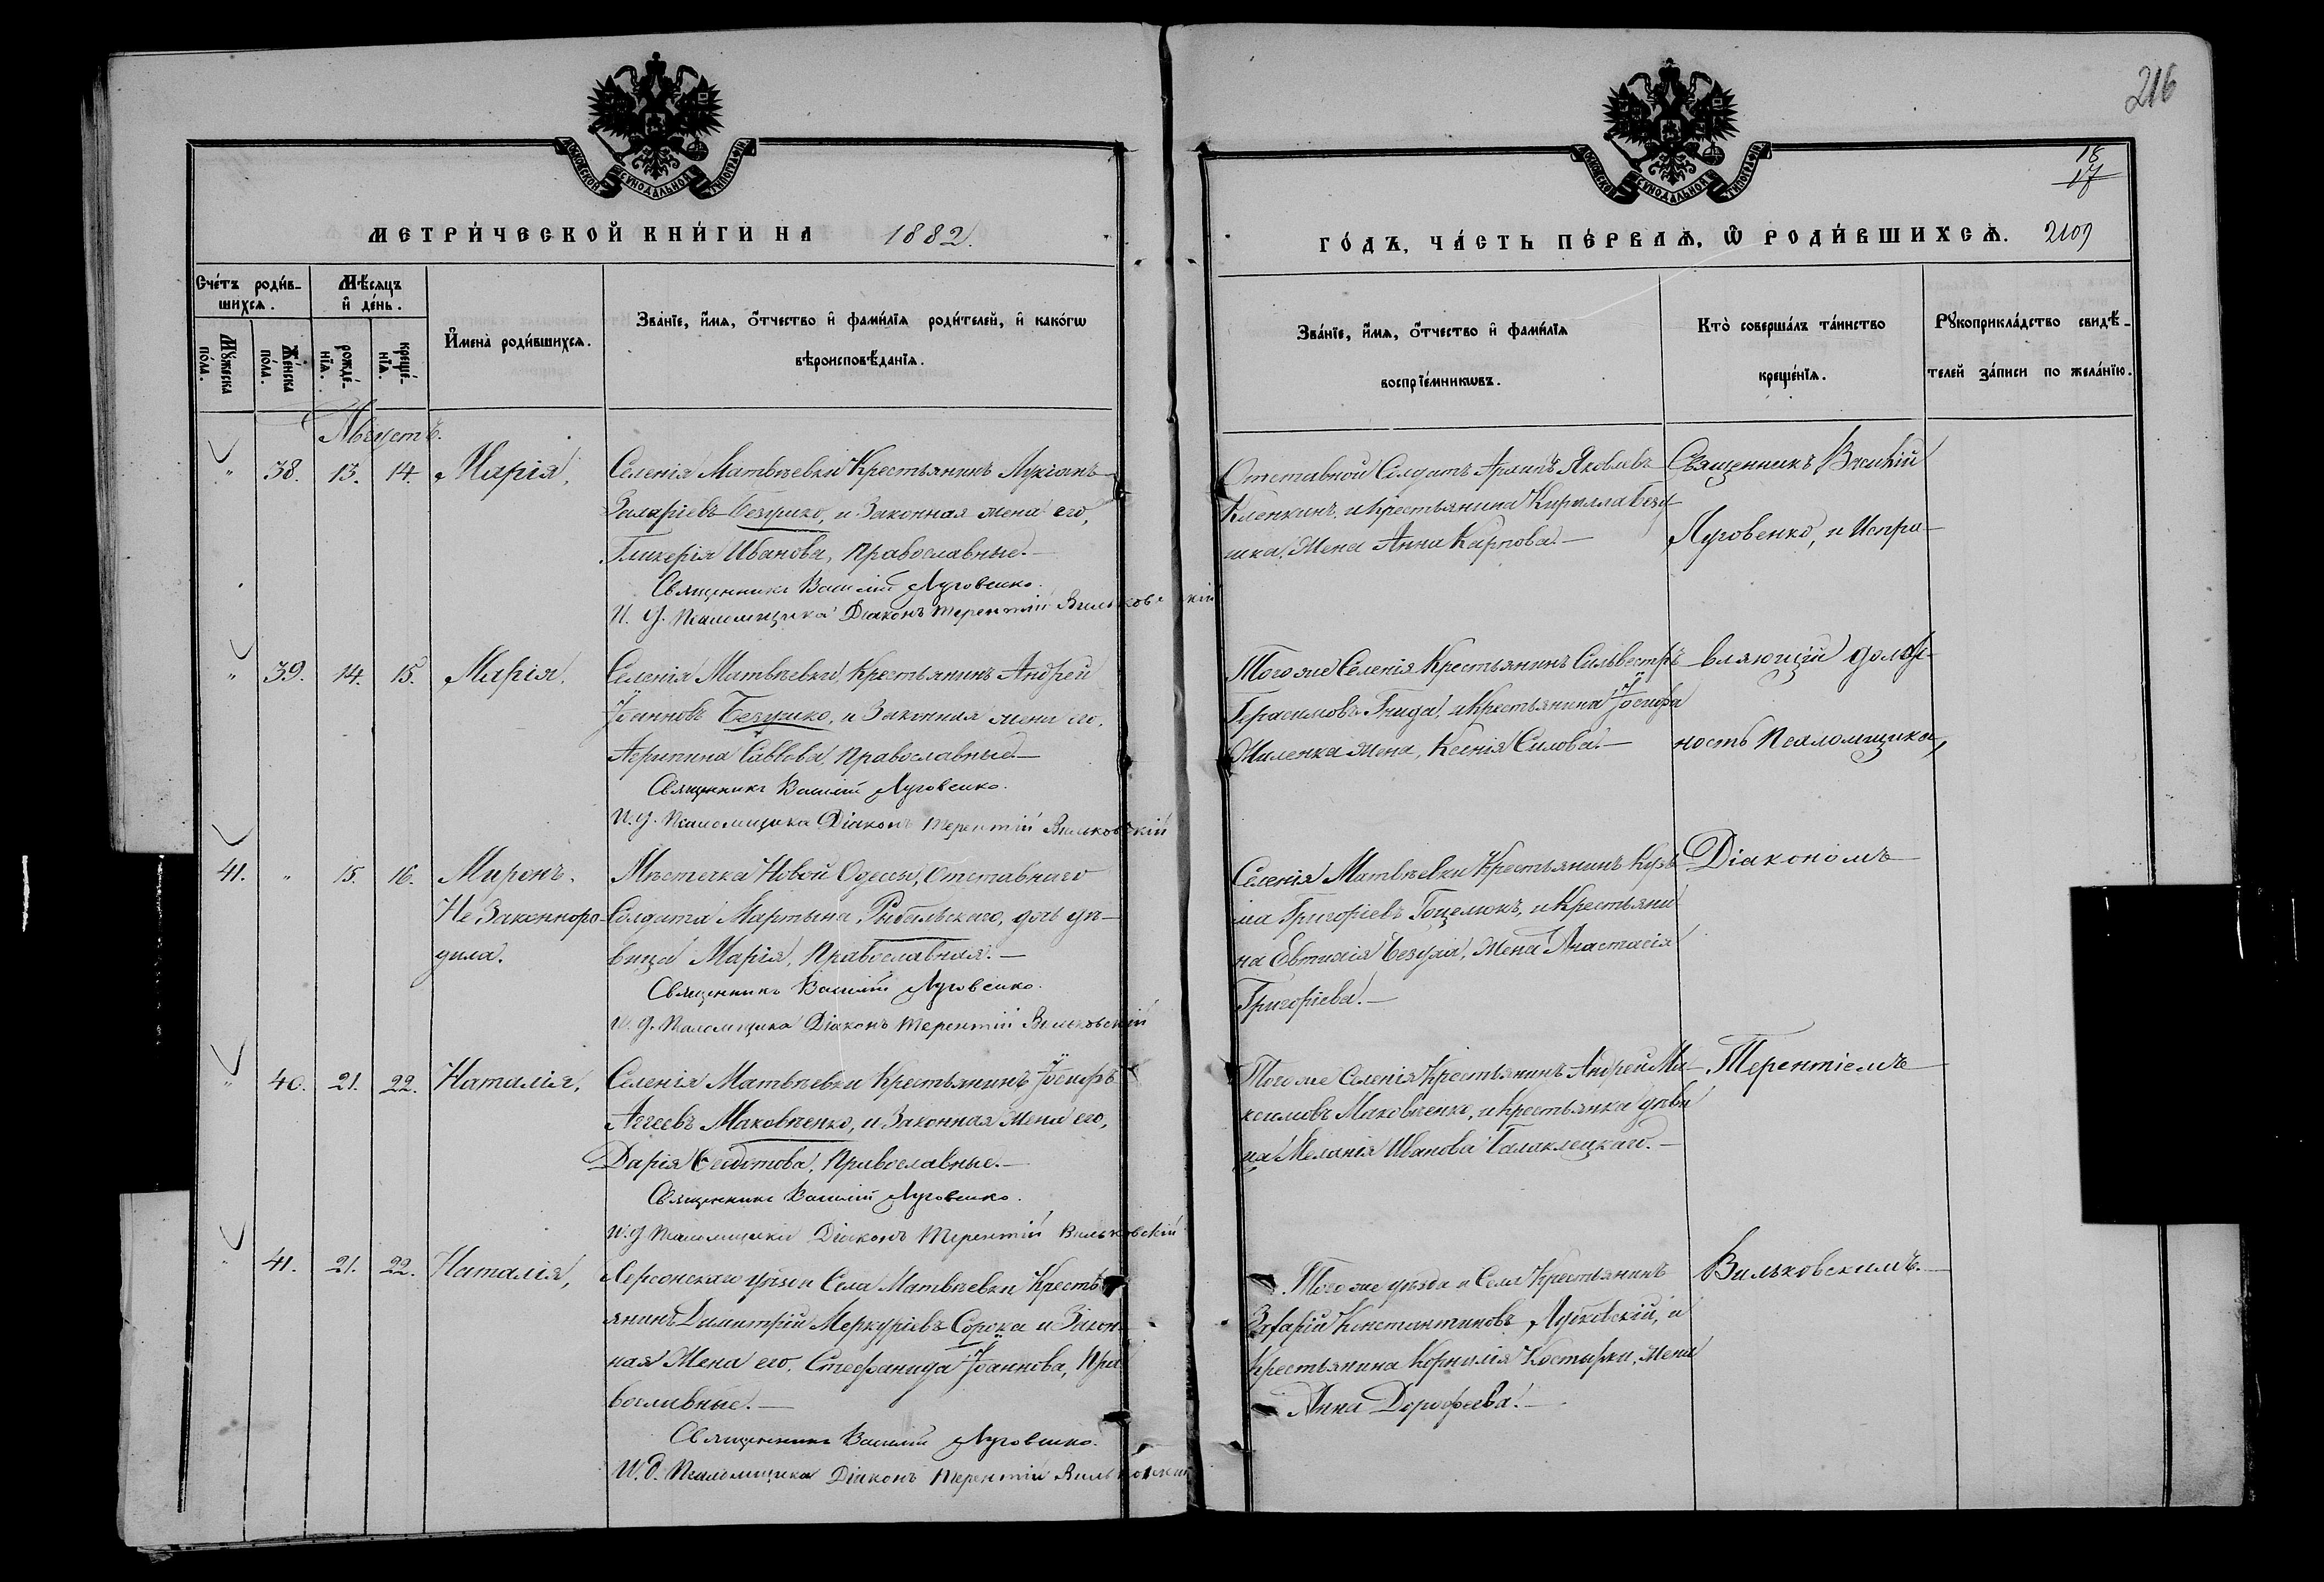 216
МОСКОВСКОЙ СѴНОДАЛЬНОЙ ТИПОГРАФІИ
МОСКОВСКОЙ СѴНОДАЛЬНОЙ ТИПОГРАФІИ
18
17
МЕТРИ́ЧЕСКОЙ КНИ́ГИ НА 1882.
ГО́ДЪ, ЧА́СТЬ ПЕ́РВАѦ, Ѽ РОДИ́ВШИХСѦ. 2109
Сче́тъ роди́в-
шихсѧ.
Мѣ́сѧцъ
и҆ де́нь.
Мꙋ́жеска
по́ла.
Же́нска
по́ла.
рожде́-
нїѧ.
креще́-
нїѧ.
И҆мена̀ роди́вшихсѧ.
Зва́нїе, и҆́мѧ, ѻ҆́тчество и҆ фами́лїѧ роди́телей, и҆ како́гѡ
вѣроисповѣ́данїѧ.
Зва́нїе, и҆́мѧ, ѻ҆́тчество и҆ фами́лїѧ
воспрїе́мникѡвъ.
Кто̀ соверша́лъ та́инство
креще́нїѧ.
Рꙋкоприкла́дство свидѣ́-
телей за́писи по жела́нїю.
Августъ.
" 38. 13. 14. Марія,
Селенія Матвѣевки Крестьянинъ Лукіанъ
Иларіевъ Безушко, и Законная жена его,
Гликерія Иванова, Православные.—
Священникъ Василій Луговенко.
И. д. Псаломщика Діаконъ Терентій Вильковскій
Отставной Солдатъ Архипъ Яковлевъ
Кленкинъ, и Крестьянина Кирилла Безу-
шка, Жена Анна Карпова.—
Священникъ Василій
Луговенко, и Испра-
" 39. 14. 15. Марія.
Селенія Матвѣевки, Крестьянинъ Андрей
Іоанновъ Безушко, и Законная жена его,
Агрипина Саввова, Православные.—
Священникъ Василій Луговенко.
И. д. Псаломщика Діаконъ Терентій Вильковскій
Того же Селенія Крестьянинъ Сильвестръ
Герасимовъ Гнида, и Крестьянина Іосифа
Жиленка жена, Ксенія Силова.—
вляющій долж-
ность Псаломщика,
41. " 15. 16. Миронъ.
Не Законноро-
дила.
Мѣстечка Новой Одессы, Отставнаго
Солдата Мартына Рибельскаго, дочь дѣ-
вица Марія, Православная.—
Священникъ Василій Луговенко.
И. д. Псаломщика Діаконъ Терентій Вильковскій
Селенія Матвѣевки Крестьянинъ Кузь-
ма Григоріевъ Гоцелюкъ, и Крестьяни-
на Евтихія Безуха, Жена Анастасія
Григоріева.—
Діакономъ
" 40. 21. 22. Наталія,
Селенія Матвѣевки Крестьянинъ Іосифъ
Аггеевъ Маковѣенко, и Законная Жена его,
Дарія Ѳеодотова, Православные.—
Священникъ Василій Луговенко.
И. д. Псаломщика Діаконъ Терентій Вильковскій
Того же Селенія Крестьянинъ Андрей Ма-
ксимовъ Маковѣенко, и Крестьянка дѣви-
ца Меланія Иванова Балаклецкаго.—
Терентіемъ
" 41. 21. 22. Наталія,
Херсонскаго уѣзда Села Матвѣевки Кресть-
янинъ Димитрій Меркуріевъ Сорока и Закон-
ная Жена его, Стефанида Іоаннова, Пра-
вославные.—
Священникъ Василій Луговенко.
И. д. Псаломщика Діаконъ Терентій Вильковскій
Того же уѣзда и Села Крестьянинъ
Захарій Константиновъ Лубковскій, и
Крестьянина Корнилія Костырки, жена
Анна Дорофеева.—
Вильковскимъ.—